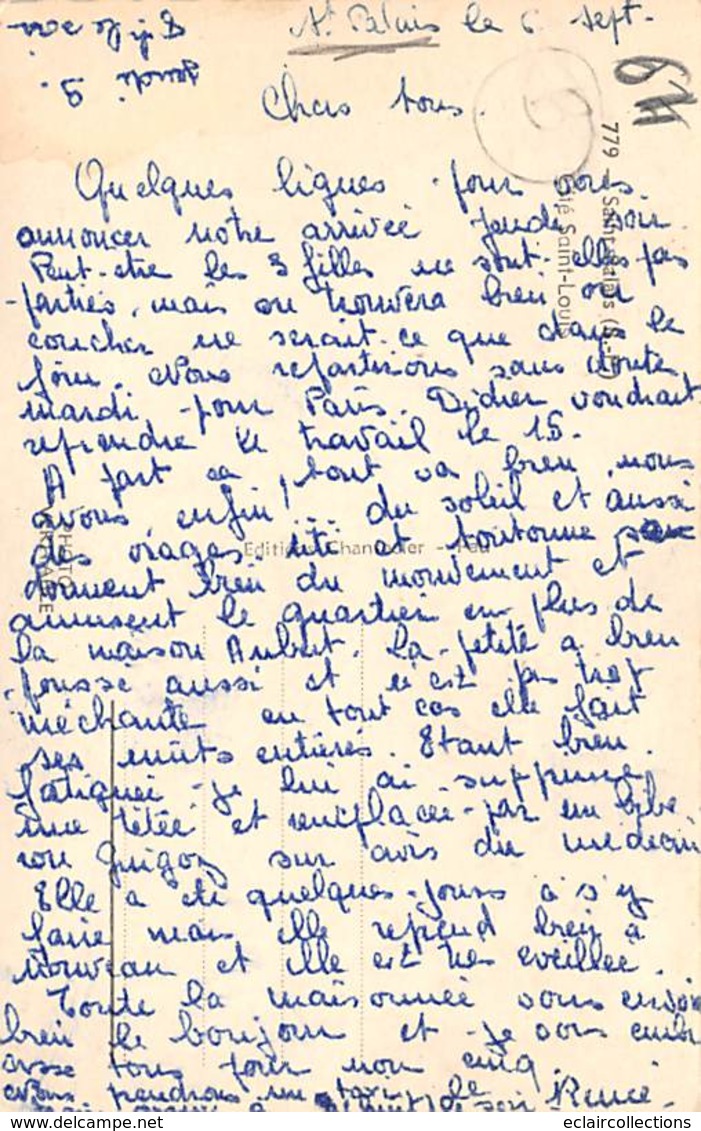 St Palais le 6 sept.
64
Chers tous.
Quelques lignes pour vous
annoncer notre arrivée Jeudi soir
Peut-être les 3 filles ne sont-elles pas
parties, mais on trouvera bien où
coucher ne serait-ce que dans le
foin. Nous repartirons sans doute
mardi pour Paris. Didier voudrait
reprendre le travail le 15.
A part ça, tout va bien, nous
avons enfin!... du soleil et aussi
des orages. et toutoune
donnent bien du mouvement et
amusent le quartier en plus de
la maison Aubert. La petite a bien
poussé aussi et n'est pas trop
méchante en tout cas elle fait
ses nuits entières. Etant bien
fatiguée je lui ai supprimé
une tétée et remplacée par un bibe
ron Guigoz sur avis du médecin
Elle a été quelques jours à s'y
faire mais elle reprend bien à
nouveau et elle est très éveillée.
Toute la maisonnée vous envoie
bien le bonjour et je vous embr
asse tous pour nous cinq.
Nous prendrons un taxi le
soir Renée.
779 - Saint-Palais (B.-P.)
Cité Saint-Louis
Editions Chantecler - Pau
PHOTO
VERITABLE
eclaircollections